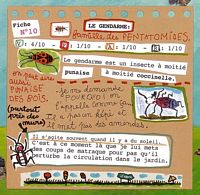 Fiche N°10
LE GENDARME:
famille des PENTATOMIDES.
: 4/10 - : 1/10 : 1/10
Le gendarme est un insecte à moitié
punaise à moitié coccinelle.
on peut dire aussi PUNAISE DES BOIS.
(surtout près des murs)
je me demande
on l'appelle comme ça
il a pas un képi et
met pas des amendes
Il s'agite souvent quand il y a du soleil.
C'est à ce moment là que je lui mets
des coups de matraque pour pas qu'il
perturbe la circulation dans le jardin.